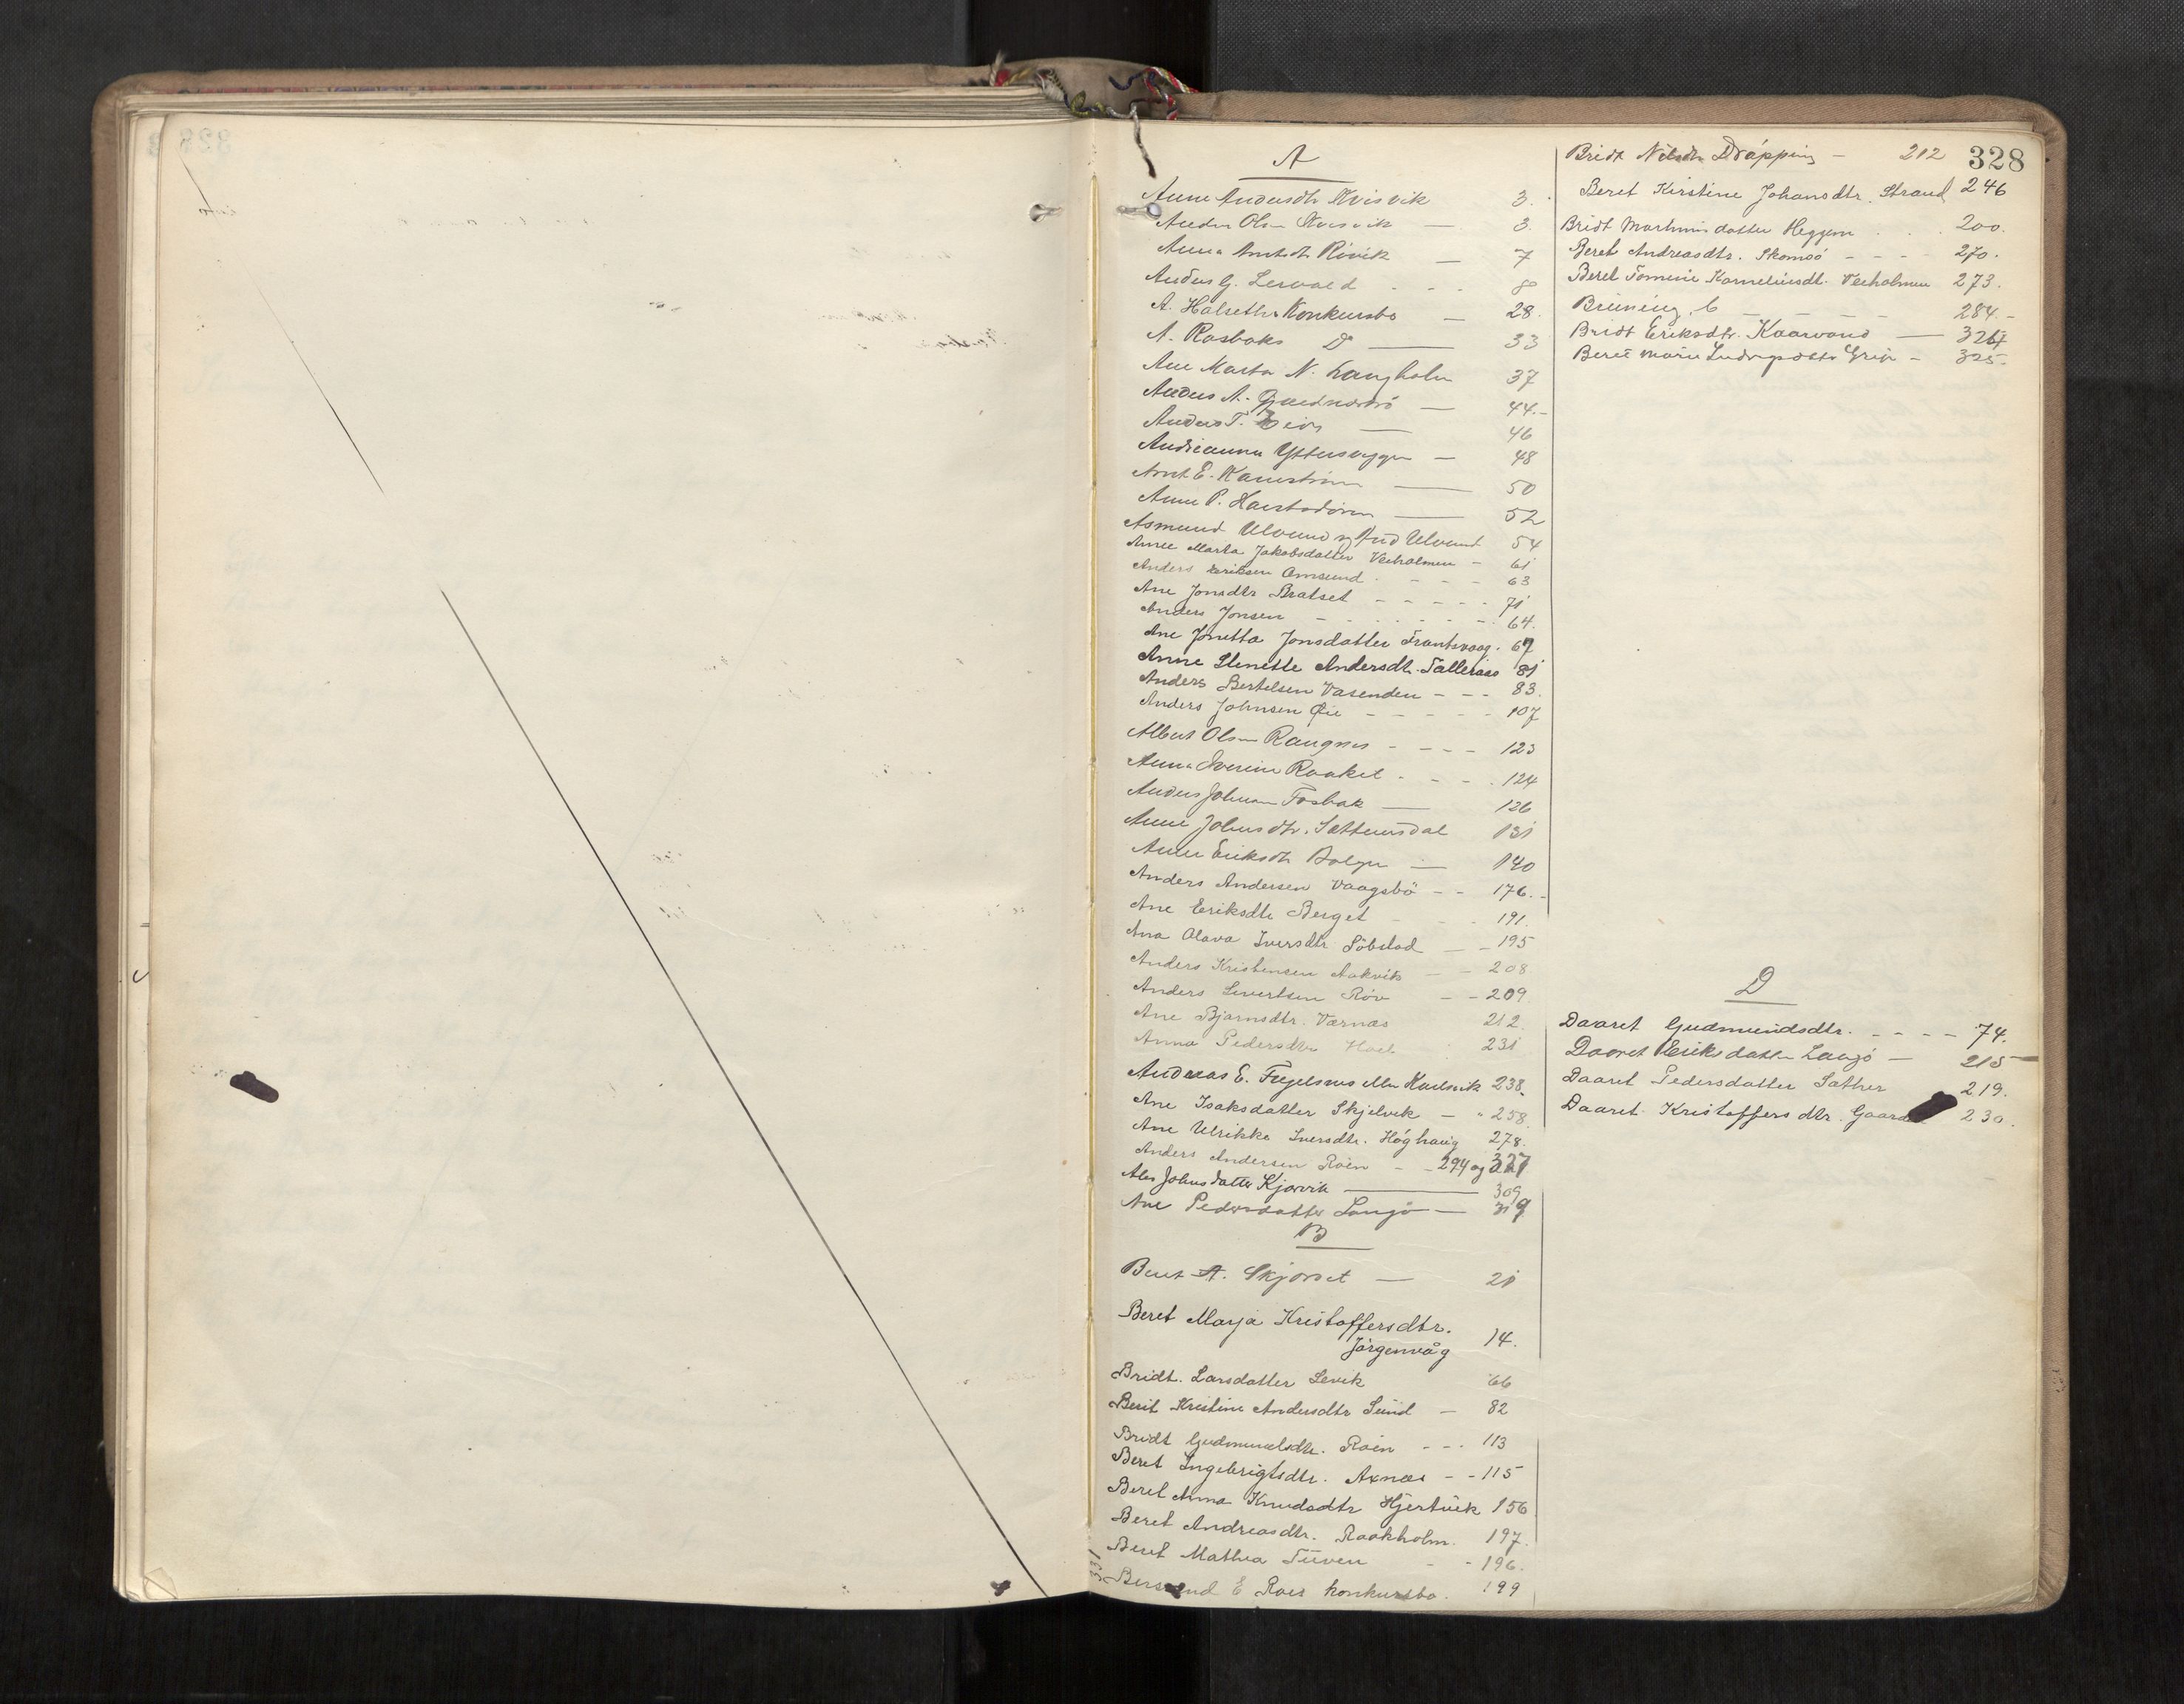 328
A
Anne Andersdtr Kvisvik 3.
Anders Olsen Kvisvik — 3.
Anna Arntsdtr Rövik — 7
Anders G. Lervold - - - 8
A. Halseths Konkursbo — 28.
A. Rosbaks D — 33
Ane Marta N. Langholm 37
Anders A. — 44.-
Anders T. — 46
Andreanna Yttersvggen — 48
Arnt E. Kanestrøm — 50
Anne P. Harstadören — 52
Asmund Ulvund og Ulvund 54
Anne Marta Jakobsdatter Veiholmen - 61
Anders Eriksen Omsund - - - - 63
Ane Jonsdtr Bratset - - - - - 71
Anders Jonsen - - - - - - - 64.
Ane Jonetta Jonsdatter Frantsvaag. 67
Anne Stenette Andersdtr. Talleraas 81
Anders Bertelsen Vasenden - - - 83.
Anders Johnsen Øie - - - - - 107
Albert Olsen Rangnes - - - - 123
Anna Iverine Raaket - - - - 124
Anders Johnsen Fosbak — 126
Anne Johnsdtr. Settemsdal 131
Anne Eriksdtr Bolgen — 140
Anders Andersen Vaagsbö - - 176.-
Ane Eriksdtr Berget - - - 191.
Ana Olava Iversdtr Söbstad — - 195
Anders Kristensen Aakvik — - 208
Anders Sivertsen Röv - - 209.
Ane Bjarnsdtr. Værnæs 212.
Anna Pedersdtr Hoel 231
Andreas E. Fugelsnes eller Karlsvik 238.
Ane Isaksdatter Skjelvik — " 258.
Ane Ulrikke Iversdtr. Höghaug 278.
Anders Andersen Roen - - 294 og 327
Ales Johnsdatter Kjørvik — 309
Ane Pedersdatter Langö — 319
B
Berit A. Skjörset — 21
Beret Marja Kristoffersdtr.
Jörgenvåg 14.
Bridt. Larsdatter Levik 66
Berit Kristine Andersdtr Sund — 82
Bridt Gudmundsdtr. Roen - - - 113
Beret Ingebrigtsdtr. Axnæs - - 115
Beret Anna Knudsdtr Hjertvik 156
Beret Andreasdtr. Raakholm. 197.
Beret Mathea Tüven - - 196.
Bersvend E Roes konkursbo. 199
331
Bridt Nilsdtr Dräpping — 212
Beret Kirstine Johansdtr. Strand 246
Bridt Martinusdatter Heggem . . . 200.
Beret Andreasdtr. Skomsö - - - - 270.
Beret Tomine Korneliusdt. Veiholmen 273.
Brüning, C — — — — 284.-
Bridt Eriksdtr. Kaarvand — 326
Beret Marie Ludvigsdtr Grip - 325.
D
Daaret Gudmundsdtr. - - - - 74.
Daaret Eriksdatter Langö — 215
Daaret Pedersdatter Sæther 219.
Daaret Kristoffersdtr. 230.